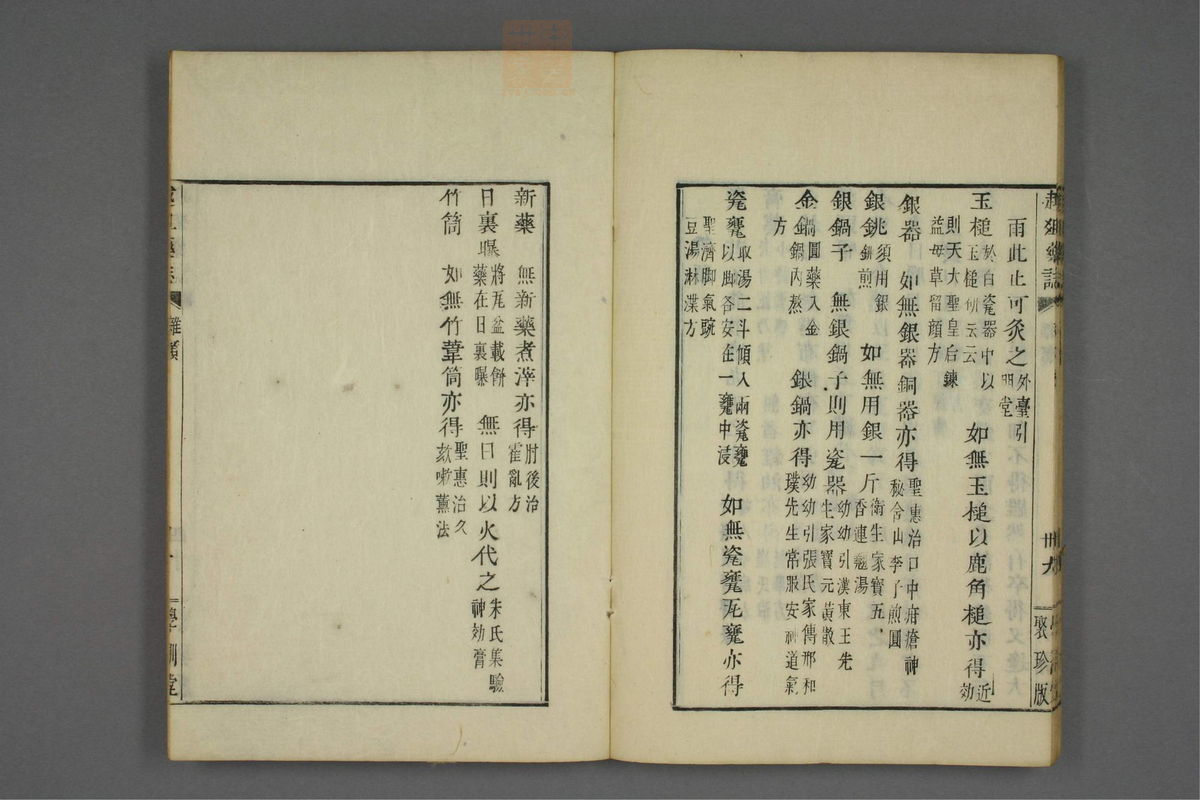 雨此止可灸之外臺引門堂
玉槌於白瓷器中以玉槌研云云 如無玉槌以鹿角槌亦得近効
則天大聖皇后鍊益母草留顔方
銀器 如無銀器銅器亦得聖惠治口中疳瘡神秘含山李子煎圓
銀銚須用銀銚煎 如無用銀一斤衛生家寶五香連翹湯
銀鍋子 無銀鍋子則用瓷器幼幼引漢東王先生家寶元黃散
金鍋圓藥入金鍋內熬 銀鍋亦得幼幼引張氏家傳邢和璞先生常服安神道氣方
瓷甕取湯二斗傾入兩瓷甕以脚各安在一甕中浸 如無瓷甕瓦甕亦得
聖濟脚氣豌豆湯淋渫方
卅六
聚珍版
新藥 無新藥煮滓亦得肘後治霍亂方
日裏曝將瓦盆載餅藥在日裏曝 無日則以火代之朱氏集驗神効膏
竹筒 如無竹葦筒亦得聖惠治久欬嗽薰法
雜類
學訓堂